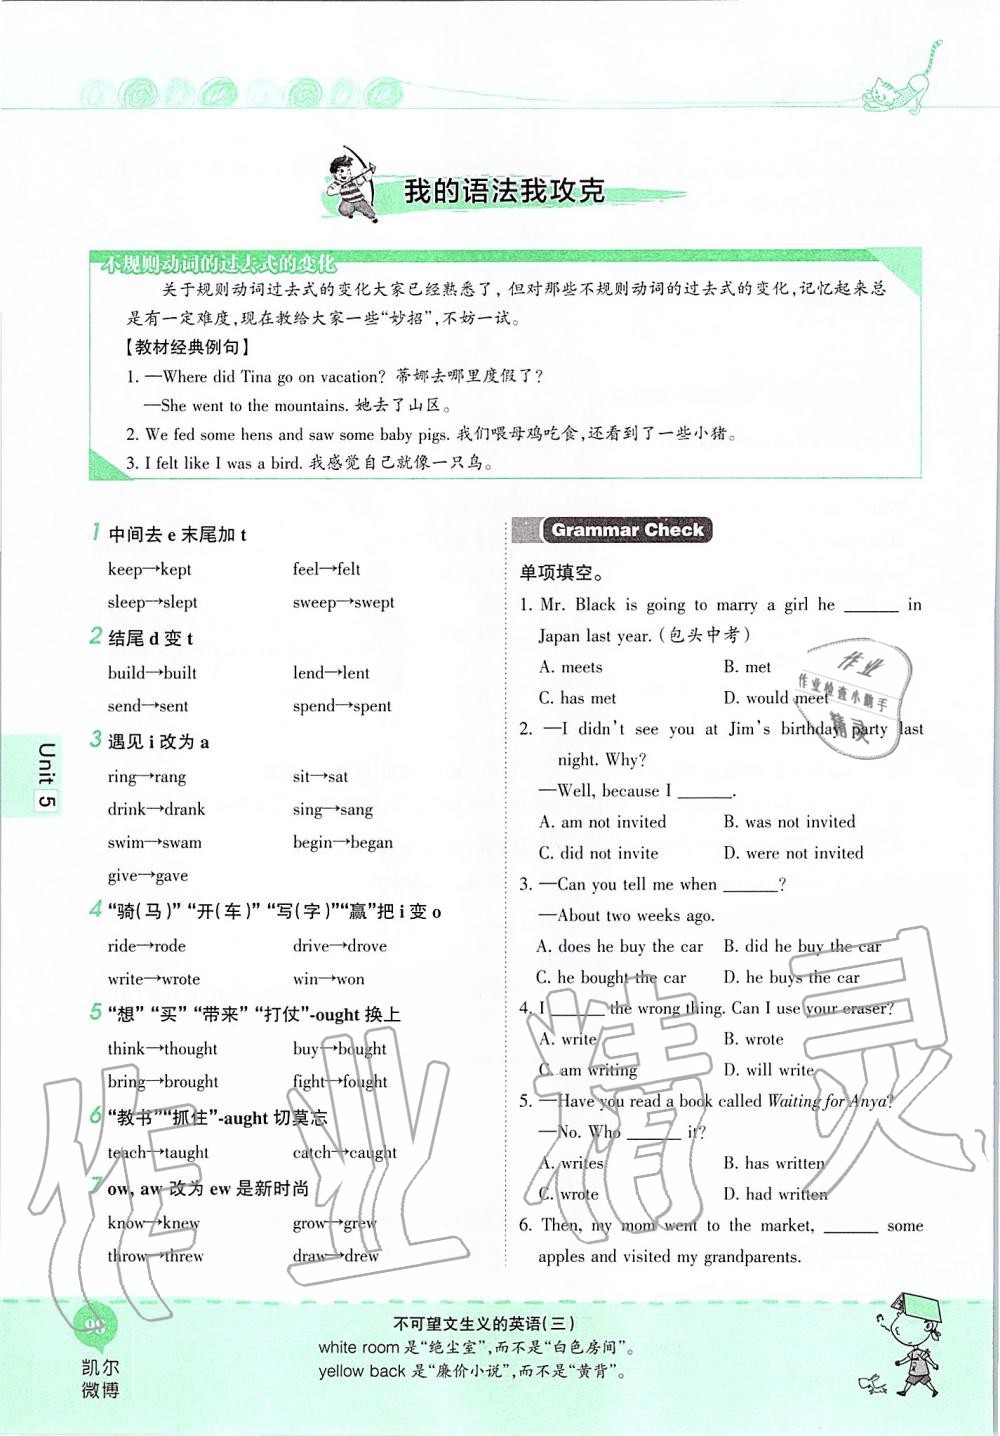 我的语法我攻克
不规则动词的过去式的变化
关于规则动词过去式的变化大家已经熟悉了,但对那些不规则动词的过去式的变化,记忆起来总
是有一定难度,现在教给大家一些“妙招”,不妨一试。
【教材经典例句】
1. —Where did Tina go on vacation? 蒂娜去哪里度假了?
—She went to the mountains. 她去了山区。
2. We fed some hens and saw some baby pigs. 我们喂母鸡吃食,还看到了一些小猪。
3. I felt like I was a bird. 我感觉自己就像一只鸟。
1 中间去 e 末尾加 t
keep→kept feel→felt
sleep→slept sweep→swept
2 结尾 d 变 t
build→built lend→lent
send→sent spend→spent
3 遇见 i 改为 a
ring→rang sit→sat
drink→drank sing→sang
swim→swam begin→began
give→gave
4 “骑(马)” “开(车)” “写(字)”“赢”把 i 变 o
ride→rode drive→drove
write→wrote win→won
5 “想” “买” “带来” “打仗”-ought 换上
think→thought buy→bought
bring→brought fight→fought
6 “教书”“抓住”-aught 切莫忘
teach→taught catch→caught
7 ow, aw 改为 ew 是新时尚
know→knew grow→grew
throw→threw draw→drew
Grammar Check
单项填空。
1. Mr. Black is going to marry a girl he ______ in
Japan last year. (包头中考)
A. meets B. met
C. has met D. would meet
2. —I didn't see you at Jim's birthday party last
night. Why?
—Well, because I ______.
A. am not invited B. was not invited
C. did not invite D. were not invited
3. —Can you tell me when ______?
—About two weeks ago.
A. does he buy the car B. did he buy the car
C. he bought the car D. he buys the car
4. I ______ the wrong thing. Can I use your eraser?
A. write B. wrote
C. am writing D. will write
5. —Have you read a book called Waiting for Anya?
—No. Who ______ it?
A. writes B. has written
C. wrote D. had written
6. Then, my mom went to the market, ______ some
apples and visited my grandparents.
Unit 5
作业
作业检查小帮手
精灵
作业精灵
98
凯尔
微博
不可望文生义的英语(三)
white room 是“绝尘室”,而不是“白色房间”。
yellow back 是“廉价小说”,而不是“黄背”。